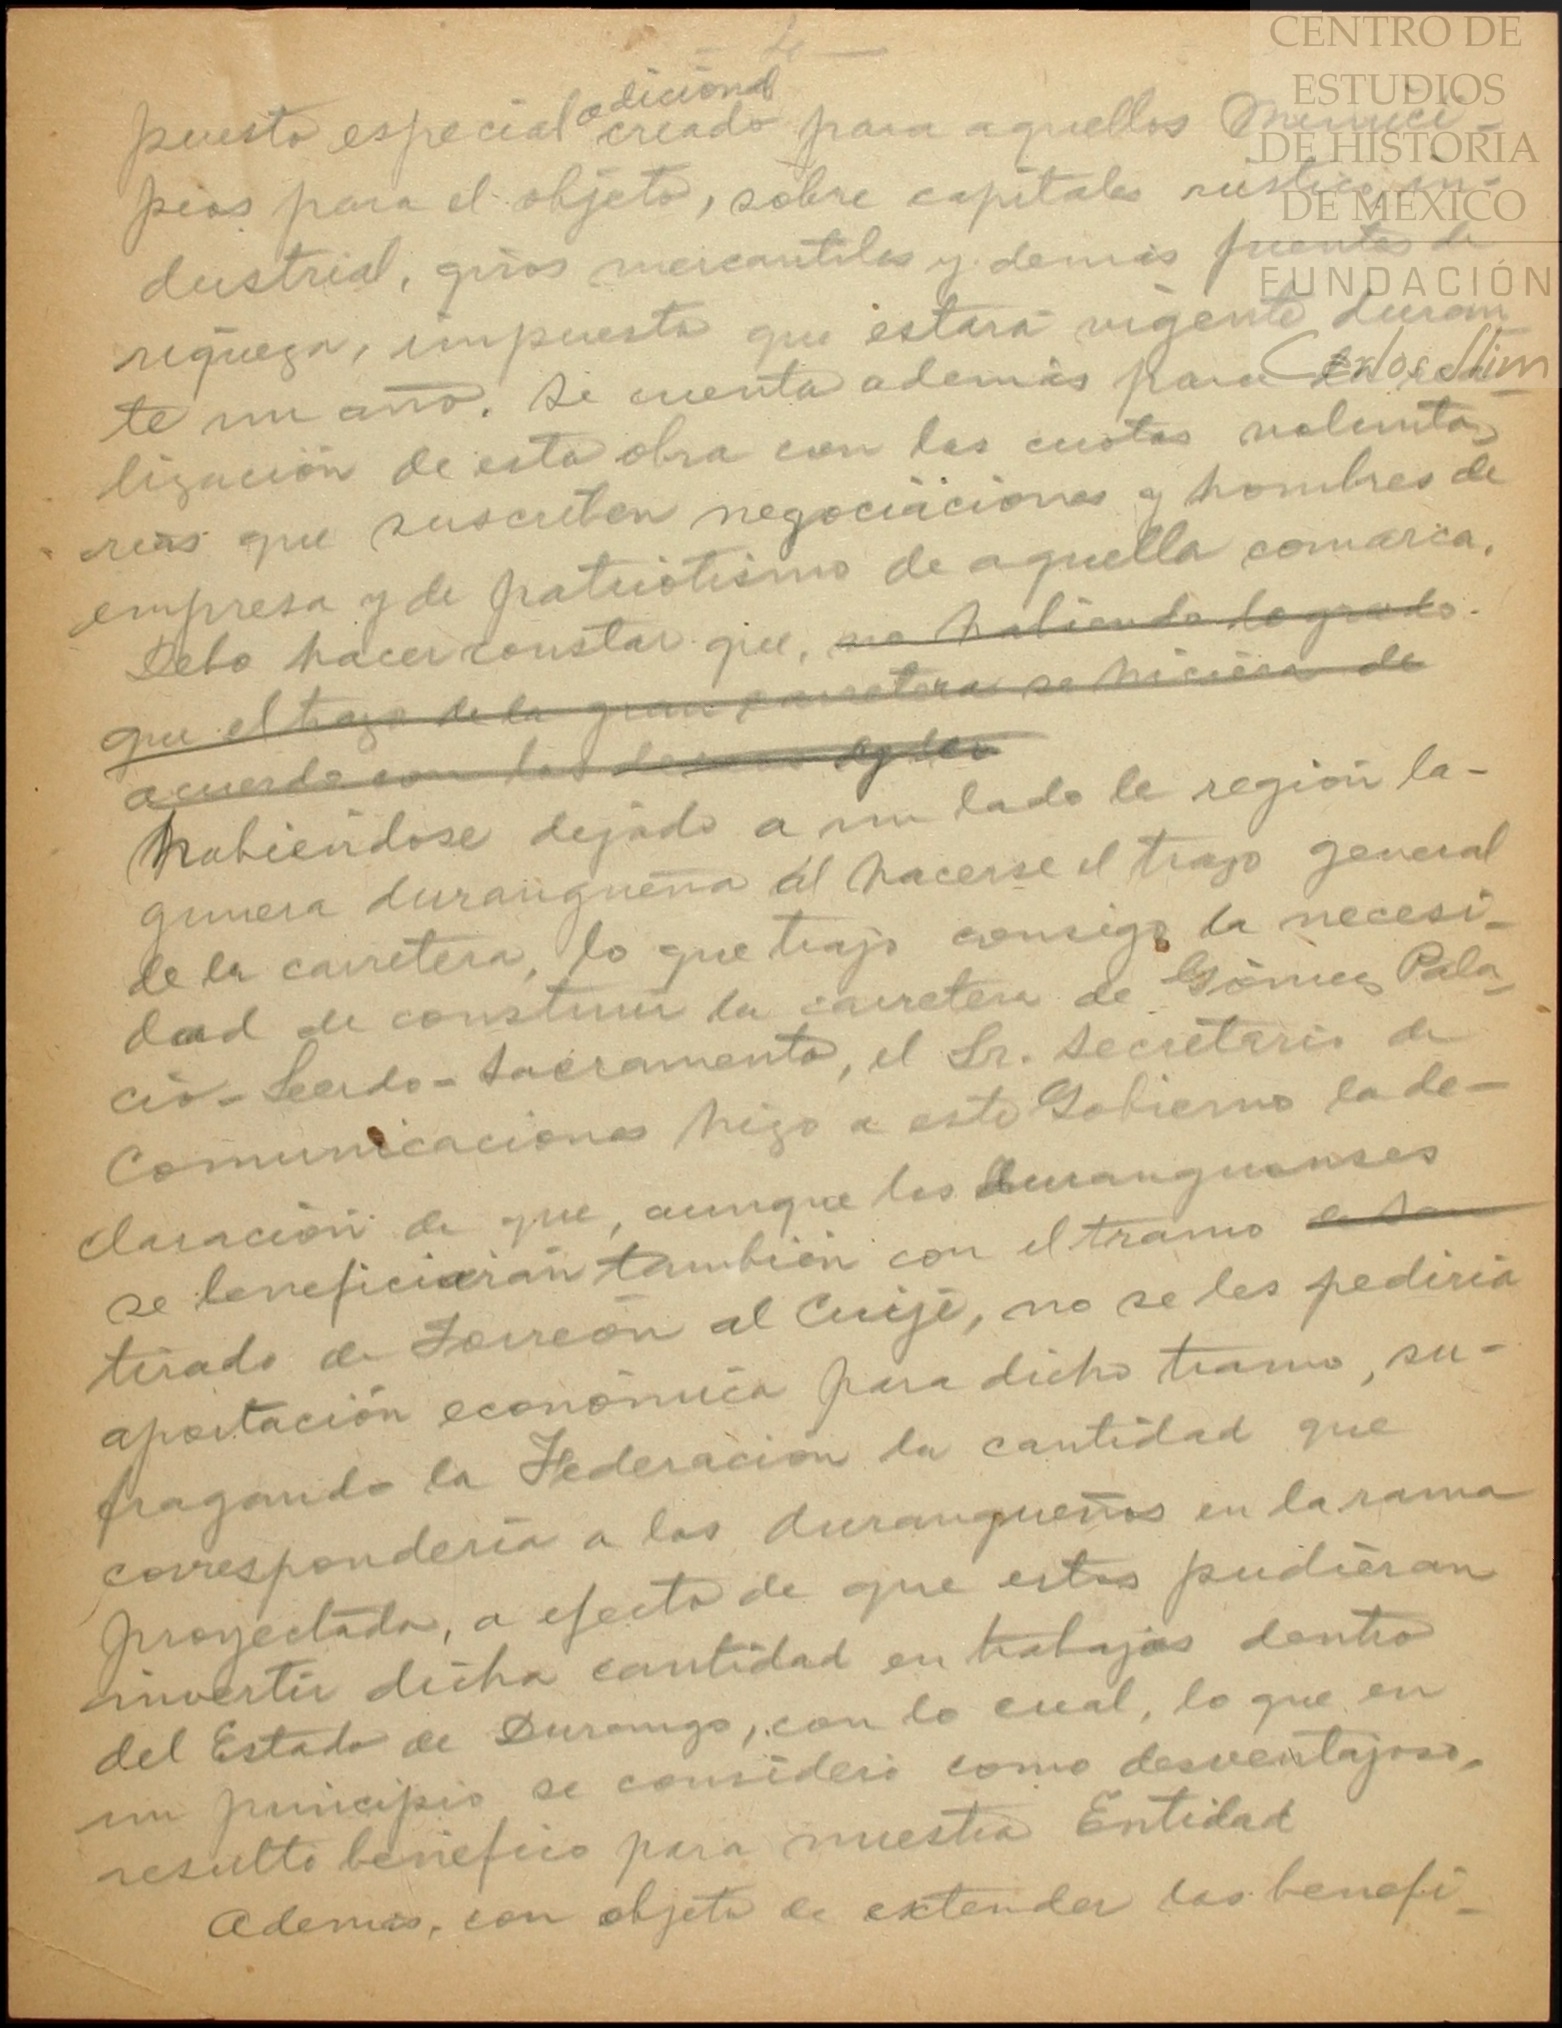 CENTRO DE
ESTUDIOS
DE HISTORIA
DE MEXICO
FUNDACIÓN
Carlos Slim
adicional
puesto especial creado para aquellos Munici-
pios para el objeto, sobre capitales rústico, in-
dustrial, giros mercantiles y demás fuentes de
riqueza, impuesto que estará vigente duran
te un año. Se cuenta además para la rea
lización de esta obra con las cuotas volunta-
rias que suscriben negociaciones y hombres de
empresa y de patriotismo de aquella comarca.
Debo hacer constar que, no habiendo logrado
que el trazo de la gran carretera se hiciera de
acuerdo con los deseos
habiéndose dejado a un lado la región la-
gunera durangueña al hacerse el trazo general
de la carretera, lo que trajo consigo la necesi-
dad de construir la carretera de Gómez Pala-
cio-Lerdo-Sacramento, el Sr. Secretario de
Comunicaciones hizo a este Gobierno la de-
claración de que, aunque los duranguenses
se beneficiarán también con el tramo
tirado de Torreón al Cuije, no se les pediría
aportación económica para dicho tramo, su-
fragando la Federación la cantidad que
correspondería a los durangueños en la rama
proyectada, a efecto de que estos pudieran
invertir dicha cantidad en trabajos dentro
del Estado de Durango, con lo cual, lo que en
un principio se consideró como desventajoso,
resultó benéfico para nuestra Entidad
Además, con objeto de extender los benefi-